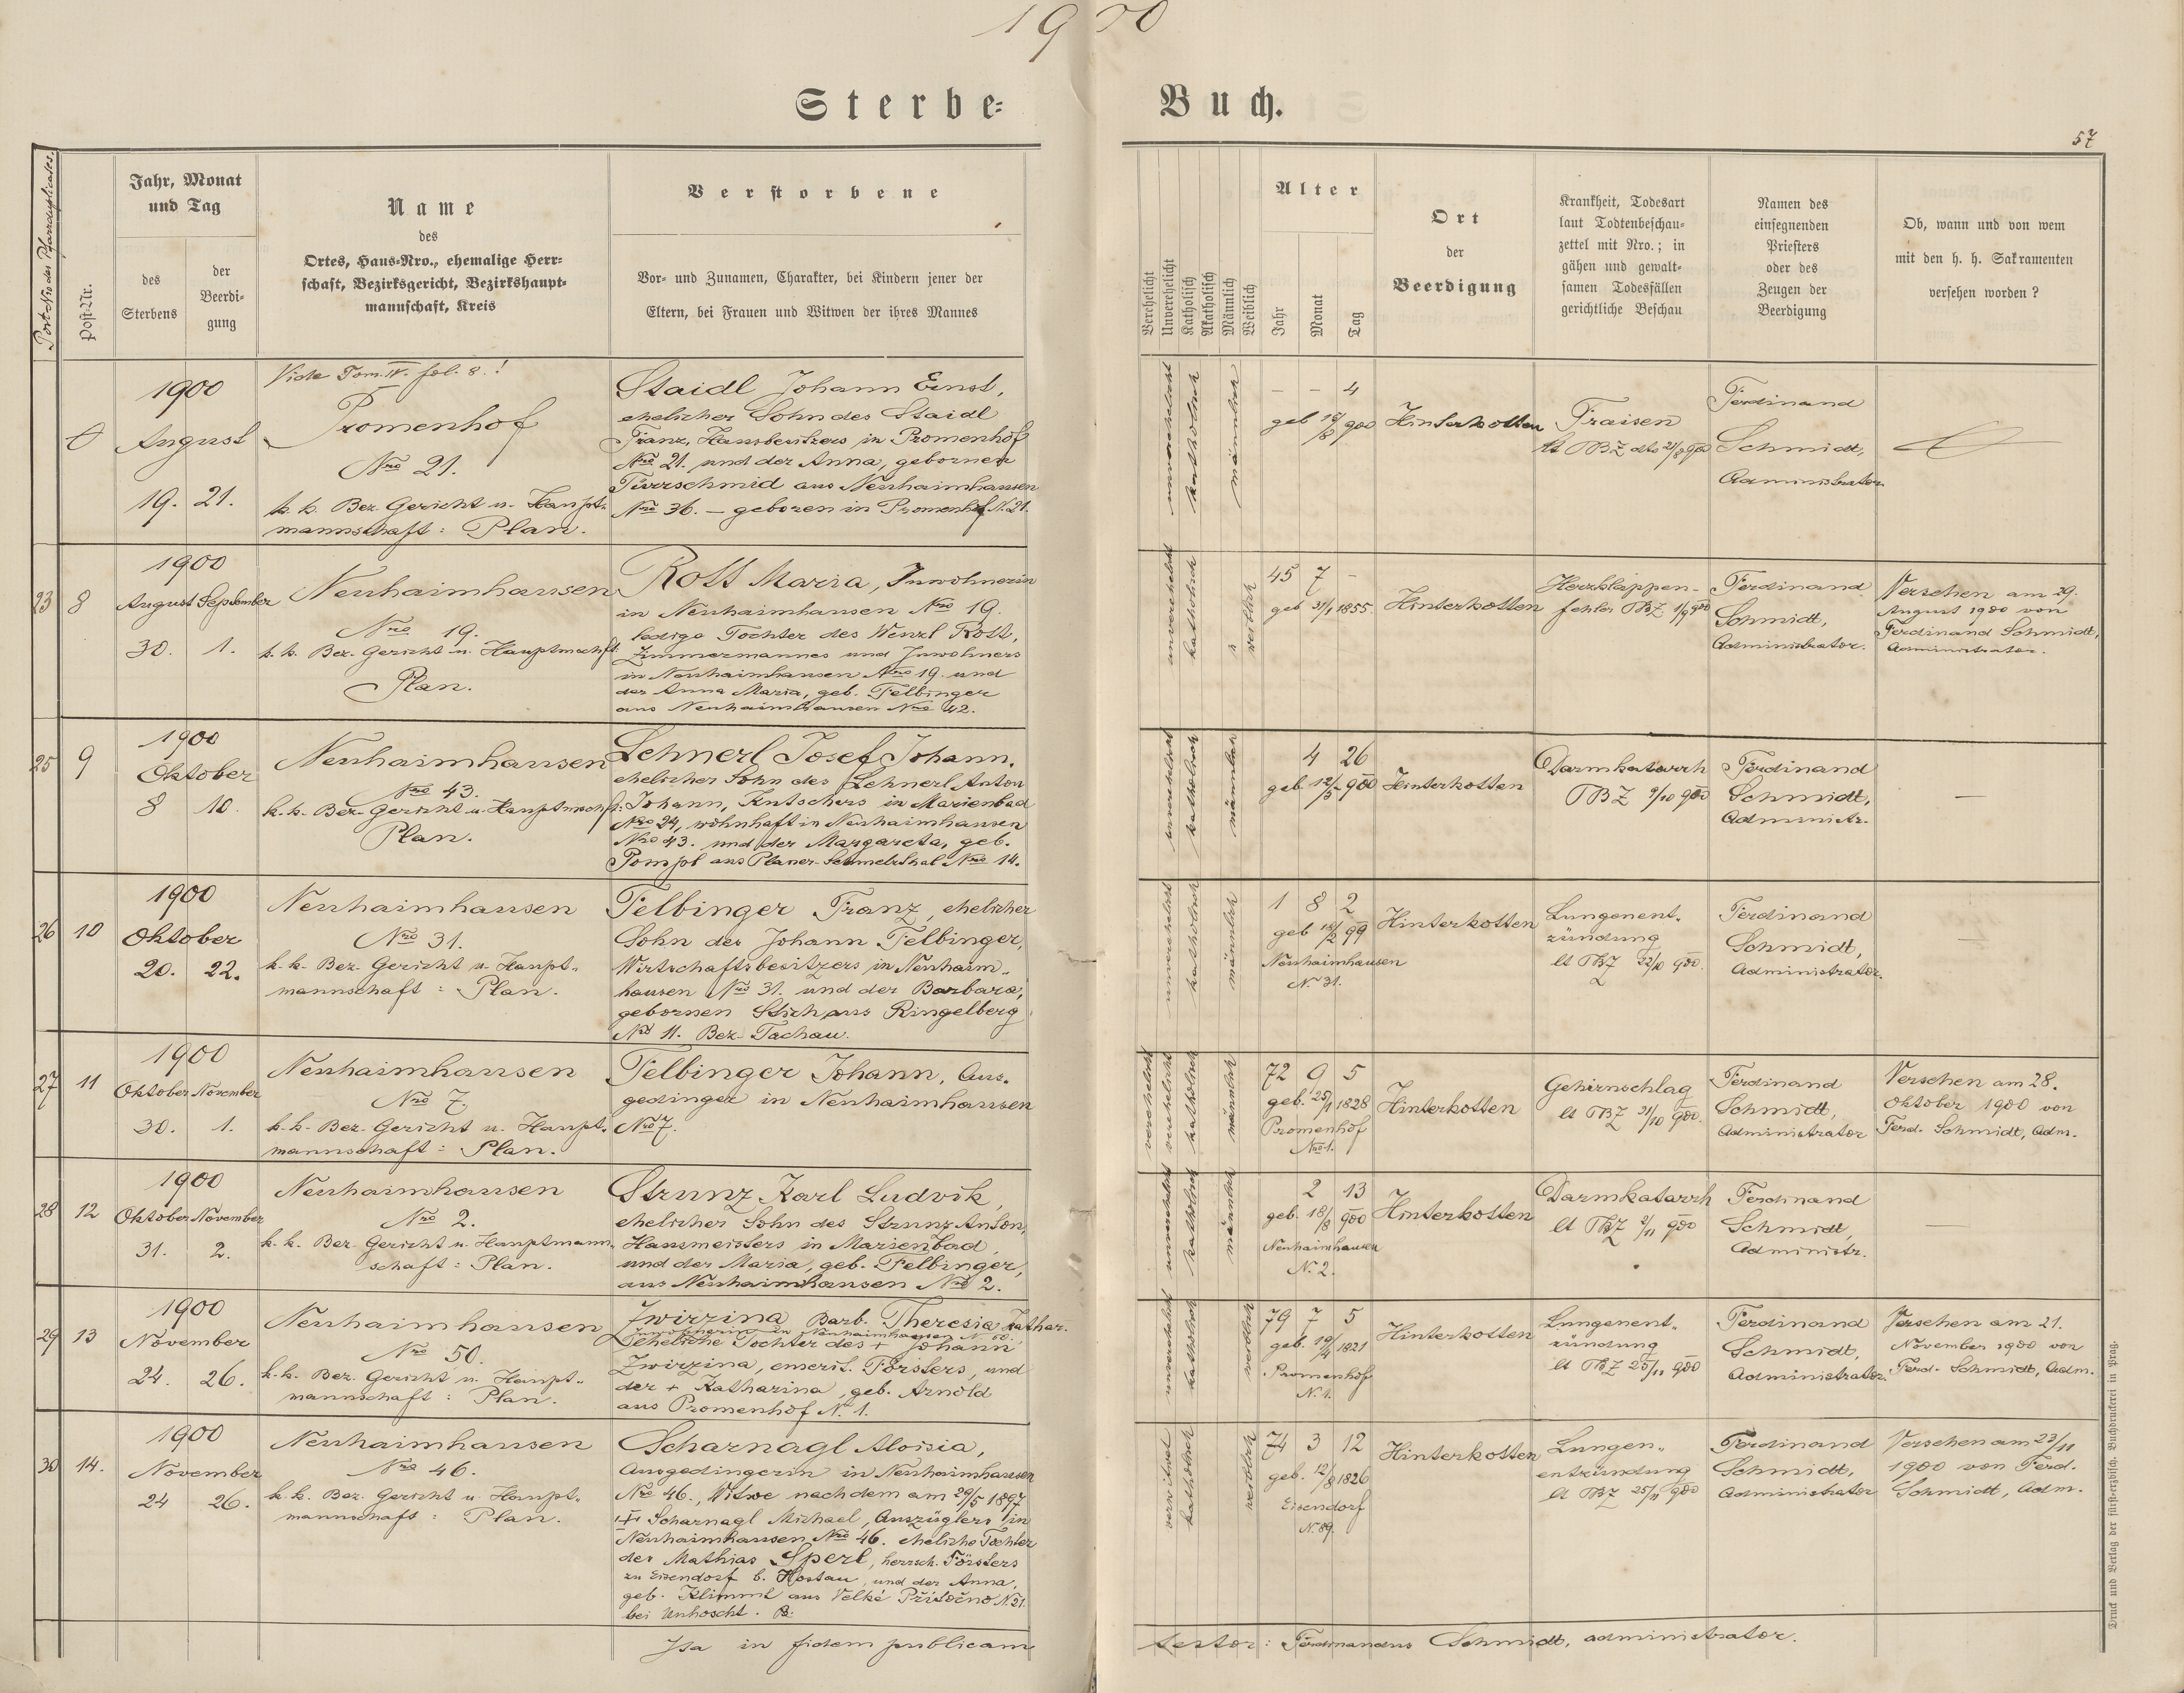 1900
Sterbe-
Buch.
57
Post-Nro des Pfarrduplicates.
Post-Nr.
Jahr, Monat
und Tag
des
Sterbens
der
Beerdi-
gung
Name
des
Ortes, Haus-Nro., ehemalige Herr-
schaft, Bezirksgericht, Bezirkshaupt-
mannschaft, Kreis
Verstorbene
Vor- und Zunamen, Charakter, bei Kindern jener der
Eltern, bei Frauen und Witwen der ihres Mannes
Verehelicht
Unverehelicht
Katholisch
Akatholisch
Männlich
Weiblich
Alter
Jahr
Monat
Tag
Ort
der
Beerdigung
Krankheit, Todesart
laut Todtenbeschau-
zettel mit Nro.; in
gähen und gewalt-
samen Todesfällen
gerichtliche Beschau
Namen des
einsegnenden
Priesters
oder des
Zeugen der
Beerdigung
Ob, wann und von wem
mit den h. h. Sakramenten
versehen worden?
1900
August
19. 21.
Vide Tom. IV. fol. 8.!
Promenhof
Nro 21.
k. k. Bez. Gericht u. Haupt-
mannschaft: Plan.
Staidl Johann Ernst,
ehelicher Sohn des Staidl
Franz, Hausbesitzers in Promenhof
Nro 21. und der Anna, gebornen
Türrschmid aus Neuhaimhausen
Nro 36. – geboren in Promenhof N. 21.
unverehelicht
katholisch
männlich
– – 4
geb 16/8 900
Hinterkotten
Fraisen
lt TBZ dto 21/8 900
Ferdinand
Schmidt,
Administrator.
23 8
1900
August September
30. 1.
Neuhaimhausen
Nro 19.
k. k. Bez. Gericht u. Hauptmschft:
Plan.
Rott Maria, Inwohnerin
in Neuhaimhausen Nro 19.
ledige Tochter des Wenzl Rott,
Zimmermannes und Inwohners
in Neuhaimhausen Nro 19. und
der Anna Maria, geb. Felbinger
aus Neuhaimhausen Nro 42.
unverehelicht
katholisch
weiblich
45 7 –
geb 31/1 1855.
Hinterkotten
Herzklappen-
fehler TBZ. 1/9 900
Ferdinand
Schmidt,
Administrator.
Versehen am 29.
August 1900 von
Ferdinand Schmidt,
Administrator.
25 9
1900
Oktober
8 10.
Neuhaimhausen
Nro 43.
k. k. Bez. Gericht u. Hauptmschft:
Plan.
Lehnerl Josef Johann.
ehelicher Sohn des Lehnerl Anton
Johann, Kutschers in Marienbad
Nro 24, wohnhaft in Neuhaimhausen
Nro 43. und der Margareta, geb.
Pompl aus Planer-Schmelzthal Nro 14.
unverehelicht
katholisch
männlich
4 26
geb. 12/5 900
Hinterkotten
Darmkatarrh
TBZ 9/10 900
Ferdinand
Schmidt,
Administr.
—
26 10
1900
Oktober
20. 22.
Neuhaimhausen
Nro 31.
k. k. Bez. Gericht u. Haupt-
mannschaft: Plan.
Felbinger Franz, ehelicher
Sohn des Johann Felbinger,
Wirtschaftsbesitzers in Neuhaim-
hausen Nro 31. und der Barbara,
gebornen Stich aus Ringelberg
Nro 11. Bez. Tachau.
unverehelicht
katholisch
männlich
1 8 2
geb 18/2 99
Neuhaimhausen
N. 31.
Hinterkotten
Lungenent-
zündung
lt TBZ 22/10 900.
Ferdinand
Schmidt,
Administrator.
—
27 11
1900
Oktober November
30. 1.
Neuhaimhausen
Nro 7.
k. k. Bez. Gericht u. Haupt-
mannschaft: Plan.
Felbinger Johann, Aus-
gedinger in Neuhaimhausen
Nro 7.
verehelicht
verehelicht
katholisch
männlich
72 9 5
geb. 25/1 1828
Promenhof
Nro 1.
Hinterkotten
Gehirnschlag
lt TBZ 31/10 900.
Ferdinand
Schmidt,
Administrator
Versehen am 28.
Oktober 1900 von
Ferd. Schmidt, Adm.
28 12
1900
Oktober November
31. 2.
Neuhaimhausen
Nro 2.
k. k. Bez. Gericht u. Hauptmann-
schaft: Plan.
Strunz Karl Ludvik,
ehelicher Sohn des Strunz Anton,
Hausmeisters in Marienbad,
und der Maria, geb. Felbinger,
aus Neuhaimhausen Nro 2.
unverehelicht
katholisch
männlich
2 13
geb. 18/8 900
Neuhaimhausen
N. 2.
Hinterkotten
Darmkatarrh
lt TBZ 2/11 900
Ferdinand
Schmidt,
Administr.
—
29 13
1900
November
24. 26.
Neuhaimhausen
Nro 50.
k. k. Bez. Gericht u. Haupt-
mannschaft: Plan.
Zwirzina Barb. Theresia Kathar.
Inwohnerin in Neuhaimhausen N. 50.
eheliche Tochter des + Johann
Zwirzina, emerit. Försters, und
der + Katharina, geb. Arnold
aus Promenhof N. 1.
unverehelicht
katholisch
weiblich
79 7 5
geb. 19/4 1821
Promenhof
N. 1.
Hinterkotten
Lungenent-
zündung
lt TBZ 25/11 900
Ferdinand
Schmidt,
Administrator.
Versehen am 21.
November 1900 von
Ferd. Schmidt, Adm.
30 14.
1900
November
24 26.
Neuhaimhausen
Nro 46.
k. k. Bez. Gericht u. Haupt-
mannschaft: Plan.
Scharnagl Aloisia,
Ausgedingerin in Neuhaimhausen
Nro 46., Witwe nach dem am 29/5 1897
+ Scharnagl Michael, Auszüglers in
Neuhaimhausen Nro 46. eheliche Tochter
des Mathias Sperl, herrsch. Försters
zu Eisendorf b. Hostau, und der Anna,
geb. Klimml aus Velké Přítočno N. 21.
bei Unhoscht.
verwitwet
katholisch
weiblich
74 3 12
geb. 12/8 1826
Eisendorf
N. 89.
Hinterkotten
Lungen-
entzündung
lt TBZ 25/11 900
Ferdinand
Schmidt,
Administrator
Versehen am 23/11
1900 von Ferd.
Schmidt, Adm.
Ita in fidem publicam
testor: Ferdinandus Schmidt, administrator.
Druck und Verlag der fürst-erzbisch. Buchdruckerei in Prag.